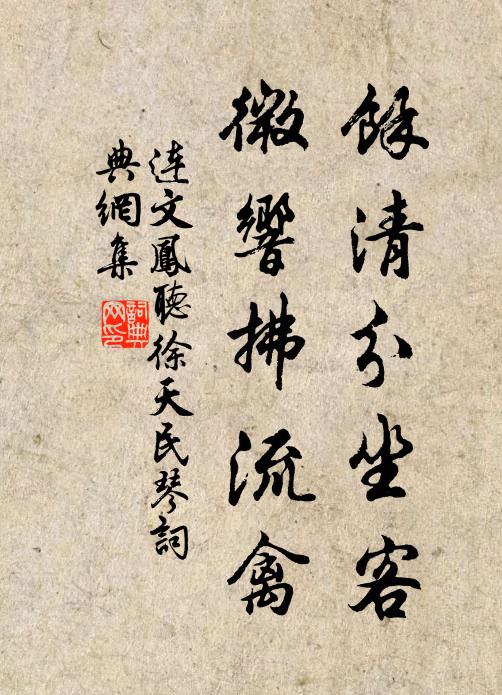 餘清分坐客
微響拂流禽
連文鳳聽徐天民琴詞
典網集
詞典网印